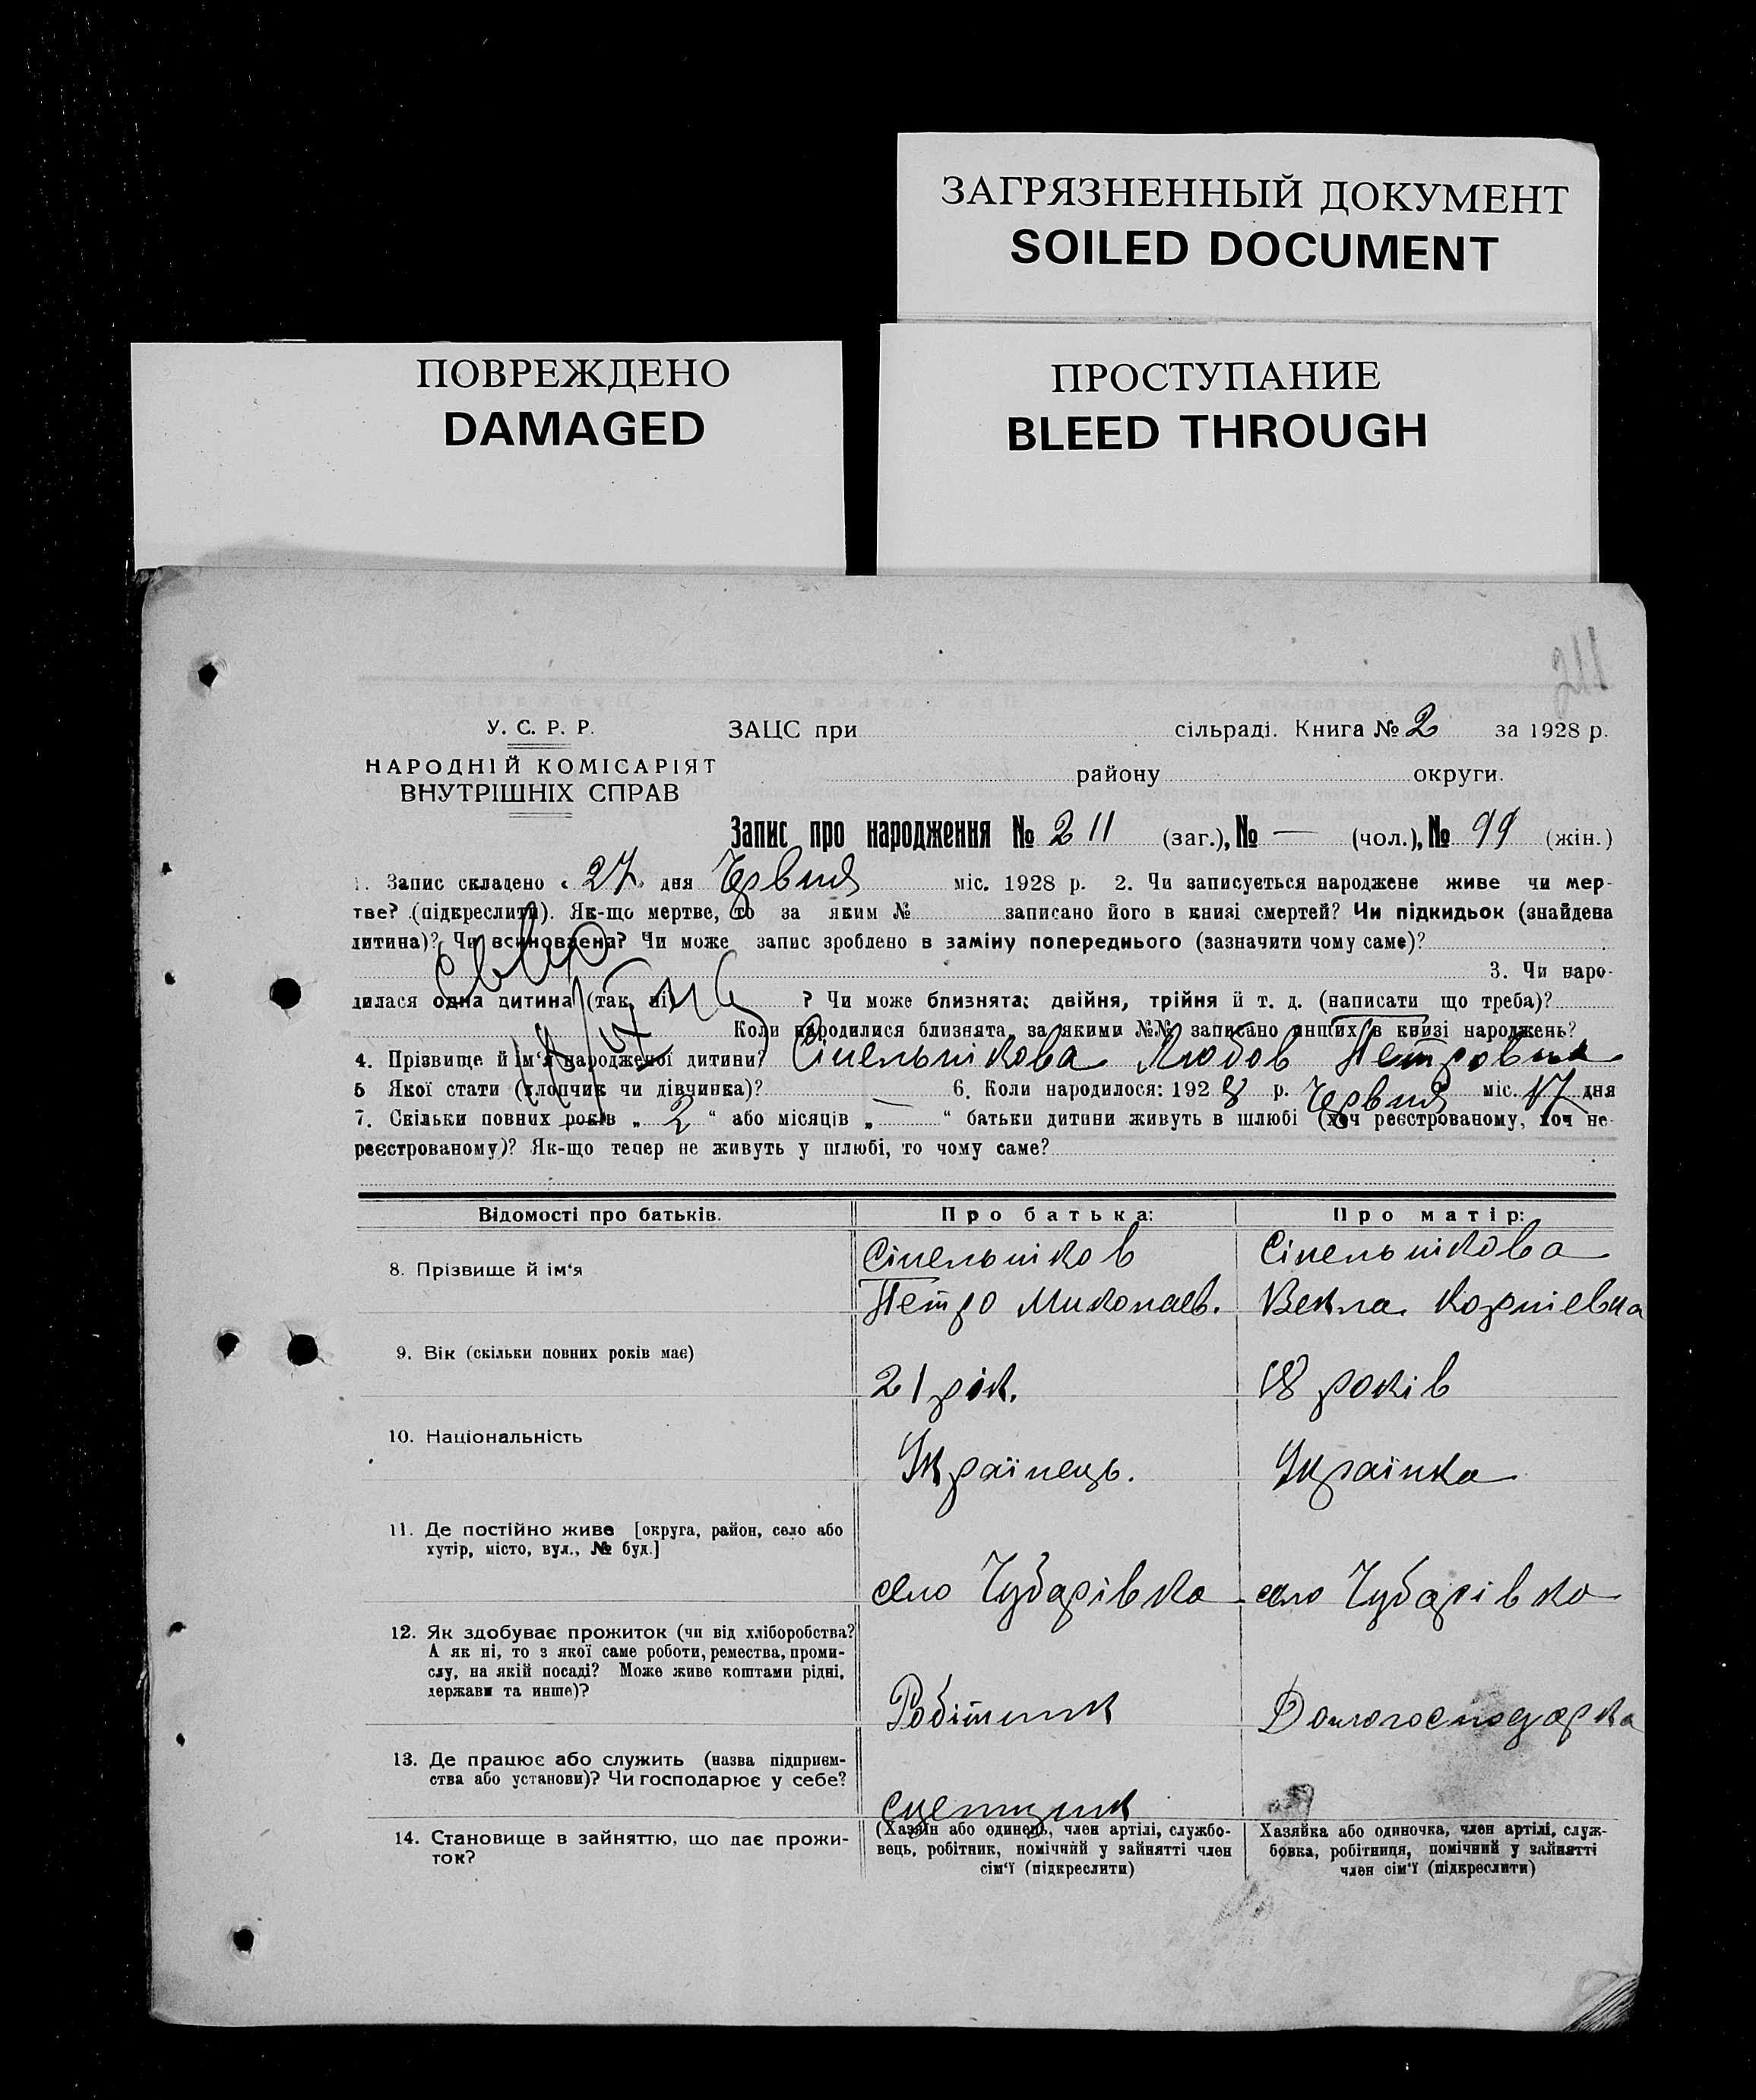 ЗАГРЯЗНЕННЫЙ ДОКУМЕНТ
SOILED DOCUMENT
ПОВРЕЖДЕНО
DAMAGED
ПРОСТУПАНИЕ
BLEED THROUGH
У. С. Р. Р.
НАРОДНІЙ КОМІСАРІЯТ
ВНУТРІШНІХ СПРАВ
ЗАЦС при сільраді. Книга № 2 за 1928 р.
району округи.
Запис про народження № 211 (заг.), № — (чол.), № 99 (жін.)
1. Запис складено „ 27 " дня Червня міс. 1928 р. 2. Чи записується народжене живе чи мер-
тве? (підкреслити). Як-що мертве, то за яким № записано його в книзі смертей? Чи підкидьок (знайдена
дитина)? Чи всиновлена? Чи може запис зроблено в заміну попереднього (зазначити чому саме)?
3. Чи наро-
дилася одна дитина (так, ні) ? Чи може близнята: двійня, трійня й т. д. (написати що треба)?
Коли народилися близнята, за якими №№ записано инших в книзі народжень?
4. Прізвище й ім'я народженої дитини? Сінельнікова Любов Петровна
5 Якої стати (хлопчик чи дівчинка)? 6. Коли народилося: 1928 р. Червня міс. 17 дня
7. Скільки повних років „ 2 " або місяців „ — " батьки дитини живуть в шлюбі (хоч реєстрованому, хоч не-
реєстрованому)? Як-що тепер не живуть у шлюбі, то чому саме?
Відомості про батьків. Про батька: Про матір:
8. Прізвище й ім'я
Сінельніков
Петро Миколаєв.
Сінельнікова
Векла Корніевна
9. Вік (скільки повних років має)
21 рік.
18 років
10. Національність
Українець.
Українка
11. Де постійно живе [округа, район, село або
хутір, місто, вул., № буд.]
село Чубарівка
село Чубарівка
12. Як здобуває прожиток (чи від хліборобства?
А як ні, то з якої саме роботи, ремества, проми-
слу, на якій посаді? Може живе коштами рідні,
держави та инше)?
Робітник
Домогосподарка
13. Де працює або служить (назва підприєм-
ства або установи)? Чи господарює у себе?
14. Становище в зайняттю, що дає прожи-
ток?
(Хазяїн або одинець, член артілі, службо-
вець, робітник, помічний у зайнятті член
сім'ї (підкреслити)
Хазяйка або одиночка, член артілі, служ-
бовка, робітниця, помічний у зайнятті
член сім'ї (підкреслити)